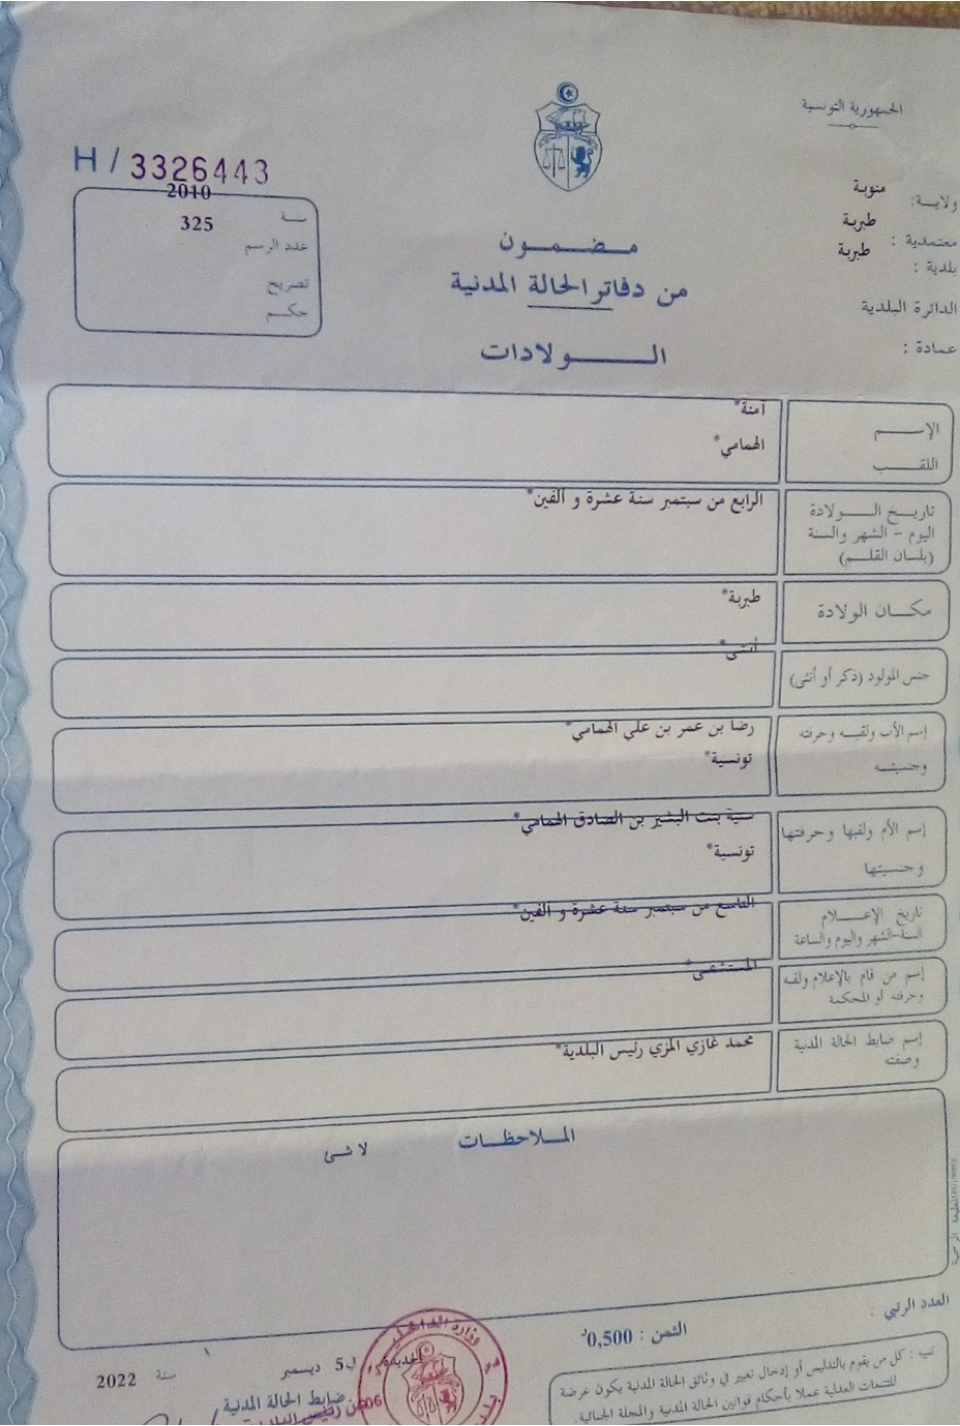 الجمهورية التونسية
H / 3326443
ولاية: منوبة
معتمدية : طبربة
بلدية : طبربة
الدائرة البلدية
عمادة :
سنة 2010
عدد الرسم 325
تصريح
حكم
مضمون
من دفاتر الحالة المدنية
الولادات
الإسم آمنة*
اللقب الهمامي*
تاريخ الولادة
اليوم - الشهر والسنة
(بلسان القلم)
الرابع من سبتمبر سنة عشرة و الفين*
مكان الولادة طبربة*
جنس المولود (ذكر أو أنثى) أنثى*
إسم الأب ولقبه وحرفته
وجنسيته
رضا بن عمر بن علي الهمامي*
تونسية*
إسم الأم ولقبها وحرفتها
وجنسيتها
سنية بنت البشير بن الصادق الهمامي*
تونسية*
تاريخ الإعلام
السنة-الشهر واليوم والساعة
التاسع من سبتمبر سنة عشرة و الفين*
إسم من قام بالإعلام ولقبه
وحرفته أو المحكمة
المستشفى*
إسم ضابط الحالة المدنية
وصفته
محمد غازي المزي رئيس البلدية*
الملاحظات
لا شئ
العدد الرتبي :
الثمن : 0,500د
الجديدة في 5 ديسمبر سنة 2022
ضابط الحالة المدنية
عن رئيس البلدية
وزارة الداخلية
تنبيه : كل من يقوم بالتدليس أو إدخال تغيير في وثائق الحالة المدنية يكون عرضة
للتتبعات العدلية عملا بأحكام قوانين الحالة المدنية والمجلة الجنائية.